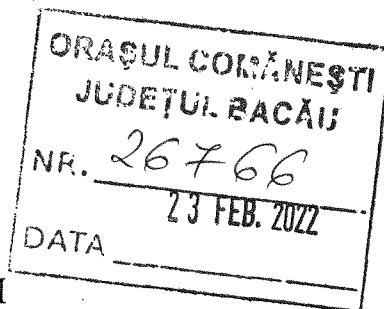 ORAȘUL COMĂNEȘTI
JUDEȚUL BACĂU
NR. 26766
23 FEB. 2022
DATA